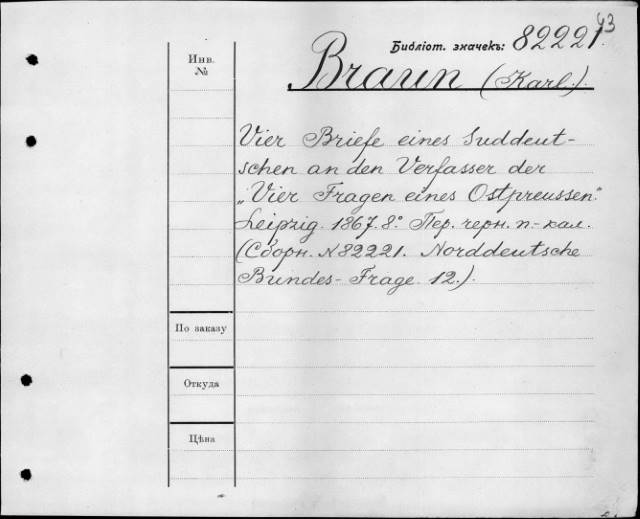 43
Библіот. значекъ: 82221.
Инв.
№
Braun (Karl.).
Vier Briefe eines Süddeut-
schen an den Verfasser der
„Vier Fragen eines Ostpreussen."
Leipzig. 1867. 8º. Пер. черн. п-кал.
(Сборн. № 82221. Norddeutsche
Bundes-Frage. 12.).
По заказу
Откуда
Цѣна